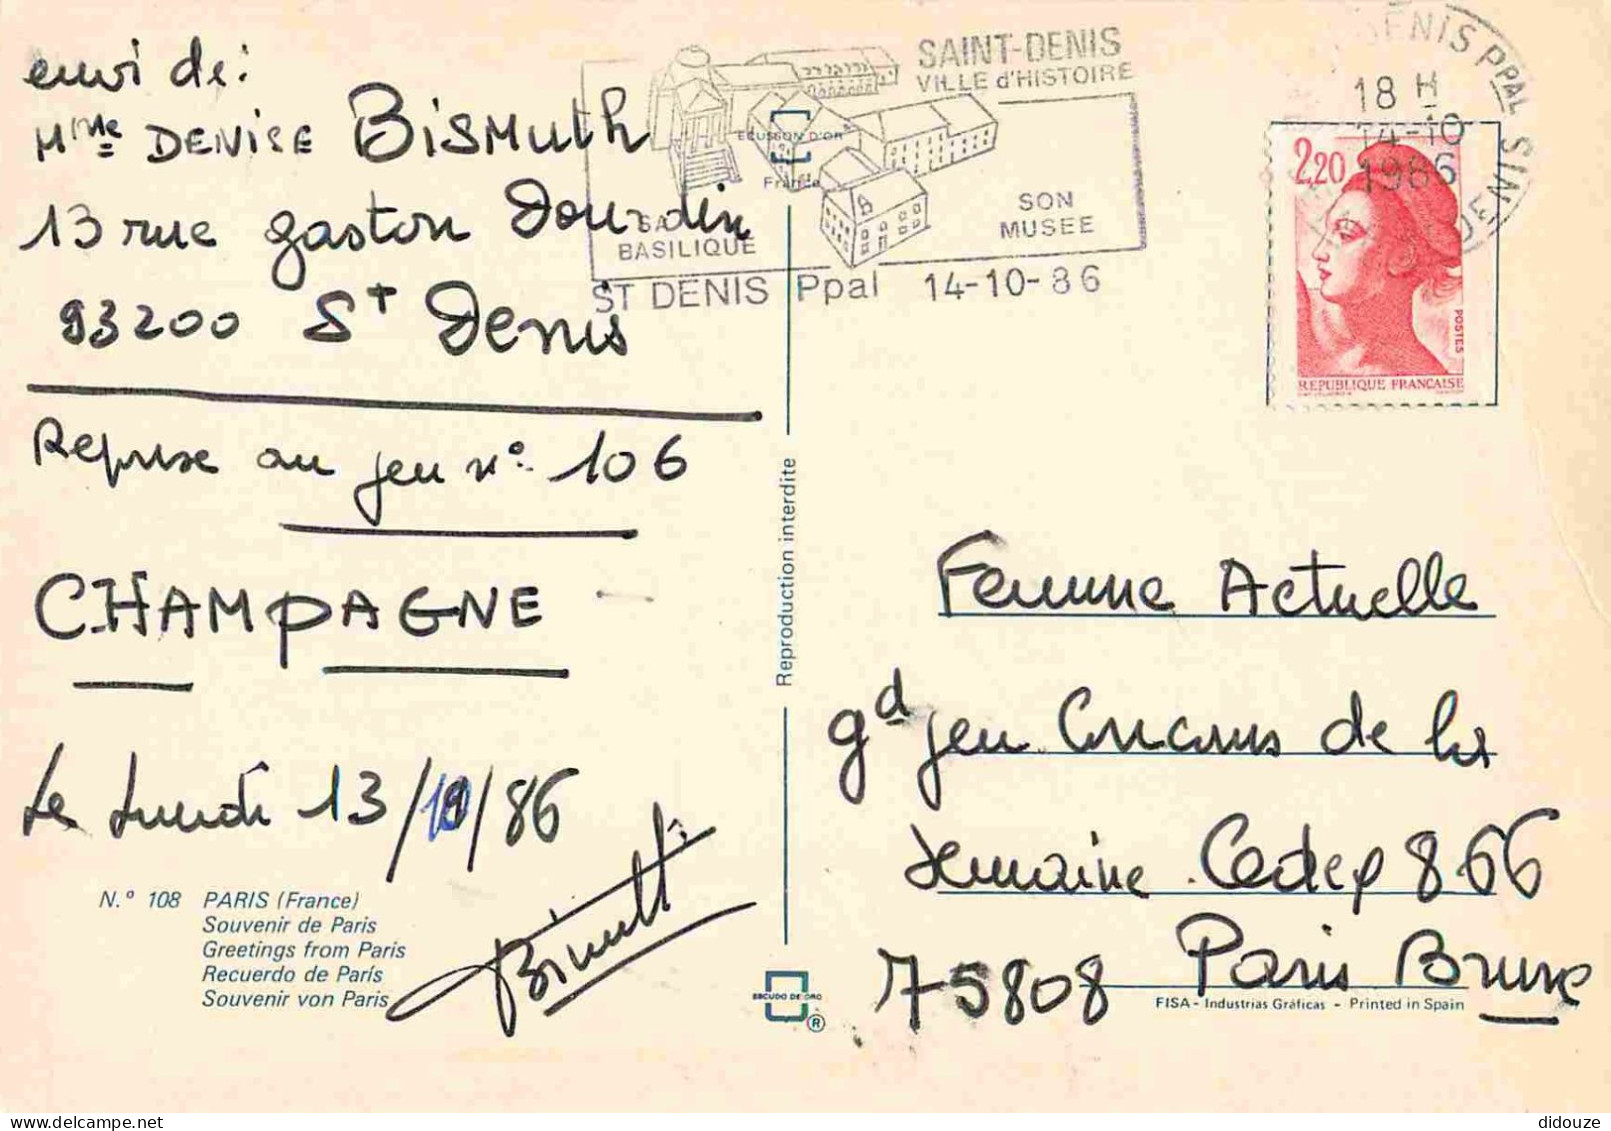 envoi de:
Mme DENISE BISMUTH
13 rue gaston Dourdin
93200 St Denis
Reponse au jeu n° 106
CHAMPAGNE
Le Lundi 13/10/86
Bismuth
N.° 108 PARIS (France)
Souvenir de Paris
Greetings from Paris
Recuerdo de París
Souvenir von Paris
SAINT-DENIS
VILLE d'HISTOIRE
SA
BASILIQUE
SON
MUSEE
ST DENIS Ppal 14-10-86
ECUSSON D'OR
France
Reproduction interdite
ESCUDO DE ORO
®
DENIS PPAL SEINE
18 H
14-10
1986
2,20
POSTES
REPUBLIQUE FRANCAISE
Femme Actuelle
gd jeu Concours de la
Semaine Cedex 866
75808 Paris Brune
FISA - Industrias Gráficas - Printed in Spain
didouze